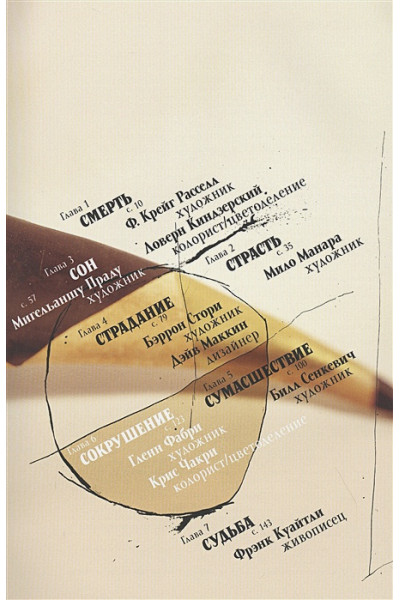 Глава 1
СМЕРТЬ
с. 10
Ф. Крейг Расселл
художник
Ловерн Киндзерский
колорист/цветоделение
Глава 2
СТРАСТЬ
с. 35
Мило Манара
художник
Глава 3
СОН
с. 57
Мигельаншу Праду
художник
Глава 4
СТРАДАНИЕ
с. 79
Бэррон Стори
художник
Дэйв Маккин
дизайнер
Глава 5
СУМАСШЕСТВИЕ
с. 100
Билл Сенкевич
художник
Глава 6
СОКРУШЕНИЕ
с. 121
Гленн Фабри
художник
Крис Чакри
колорист/цветоделение
Глава 7
СУДЬБА
с. 143
Фрэнк Куайтли
живописец